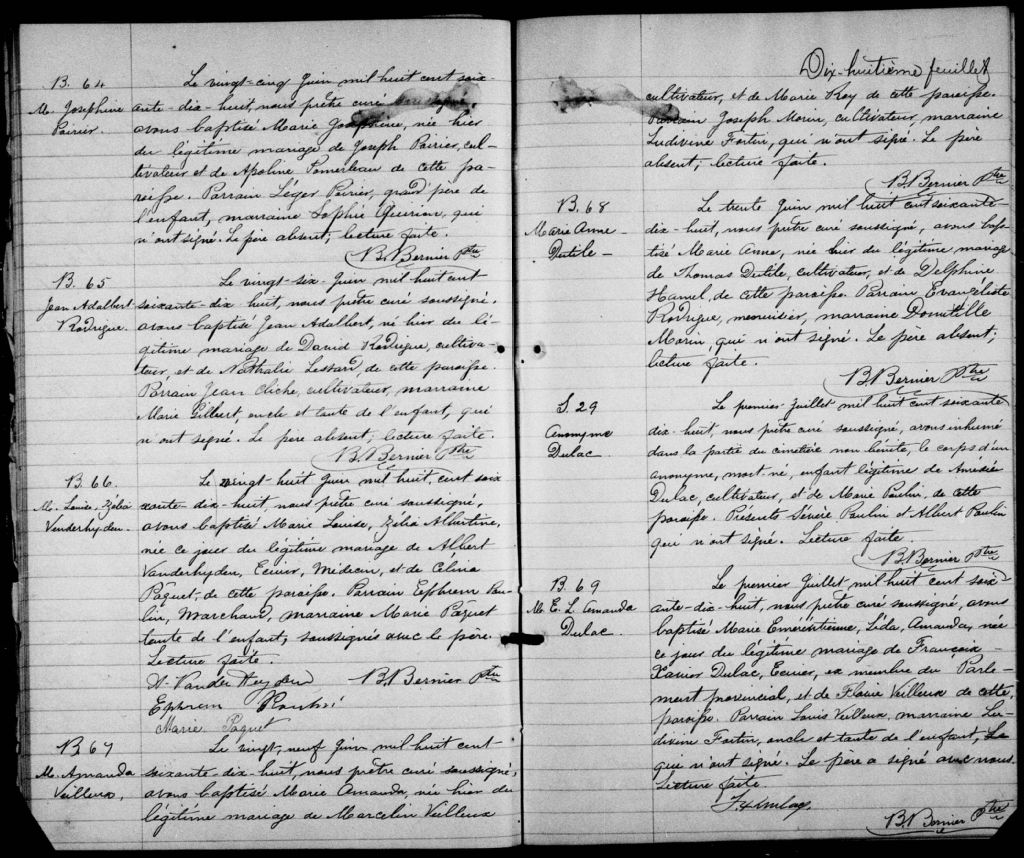 B. 64
M. Josephine
Poirier.
Le vingt-cinq Juin mil huit cent soix-
ante-dix-huit, nous prêtre curé
avons baptisé Marie Josephine, née hier
du légitime mariage de Joseph Poirier, cul-
tivateur et de Apoline Pomerleau de cette pa-
roisse. Parrain Léger Poirier, grand père de
l'enfant, marraine Sophie qui
n'ont signé. Le père absent; lecture faite.
B. Bernier Ptre
B. 65
Jean Adalbert
Rodrigue.
Le vingt-six Juin mil huit cent
soixante-dix-huit, nous prêtre curé soussigné,
avons baptisé Jean Adalbert, né hier du lé-
gitime mariage de David Rodrigue, cultiva-
teur, et de Nathalie Lessard, de cette paroisse.
Parrain Jean Cliche, cultivateur, marraine
Marie Gilbert, oncle et tante de l'enfant, qui
n'ont signé. Le père absent; lecture faite.
B. Bernier Ptre
B. 66.
M. Louise, Zélia
Vanderhyden.
Le vingt-huit Juin mil huit, cent soix
xante-dix-huit, nous prêtre curé soussigné,
avons baptisé Marie Louise, Zélia Albertine,
née ce jour du légitime mariage de Albert
Vanderhyden, Ecuier, Médecin, et de Elina
Pâquet, de cette paroisse. Parrain Ephrem Pou-
lin, Marchand, marraine Marie Pâquet
tante de l'enfant, soussignés avec le père.
Lecture faite.
A. VanderHeyden B. Bernier Ptre
Ephrem
Marie Paquet
B 67
M. Amanda
Veilleux.
Le vingt-neuf Juin mil huit cent
soixante-dix-huit, nous prêtre curé soussigné,
avons baptisé Marie Amanda, née hier du
légitime mariage de Marcelin Veilleux
Dix-huitième feuillet
cultivateur, et de Marie Roy de cette paroisse.
Parrain Joseph Morin, cultivateur, marraine
Ludivine Fortin, qui n'ont signé. Le père
absent; lecture faite.
B. Bernier Ptre
B. 68
Marie Anne
Dutile
Le trente Juin mil huit cent soixante-
dix-huit, nous prêtre curé soussigné, avons bap-
tisé Marie Anne, née hier du légitime mariage
de Thomas Dutile, cultivateur, et de Delphine
Hamel, de cette paroisse. Parrain Evangéliste
Rodrigue, menuisier, marraine Domitille
Morin, qui n'ont signé. Le père absent;
lecture faite.
B. Bernier Ptre
S. 29
Anonyme
Dulac.
Le premier Juillet mil huit cent soixante
dix-huit, nous prêtre curé soussigné, avons inhumé
dans la partie du cimetière non bénite, le corps d'un
anonyme, mort-né, enfant légitime de Amédée
Dulac, cultivateur, et de Marie Poulin, de cette
paroisse. Présents Poulin et Albert Poulin
qui n'ont signé. Lecture faite.
B. Bernier Ptre
B. 69
M. E. L. Amanda
Dulac.
Le premier Juillet mil huit cent soix
ante-dix-huit, nous prêtre curé soussigné, avons
baptisé Marie Lida, Amanda, née
ce jour du légitime mariage de François-
Xavier Dulac, Ecuier, ex membre du Parle-
ment provincial, et de Flavie Veilleux de cette
paroisse. Parrain Louis Veilleux, marraine Lu-
divine Fortin, oncle et tante de l'enfant,
qui n'ont signé. Le père a signé avec nous.
Lecture faite
B. Bernier Ptre